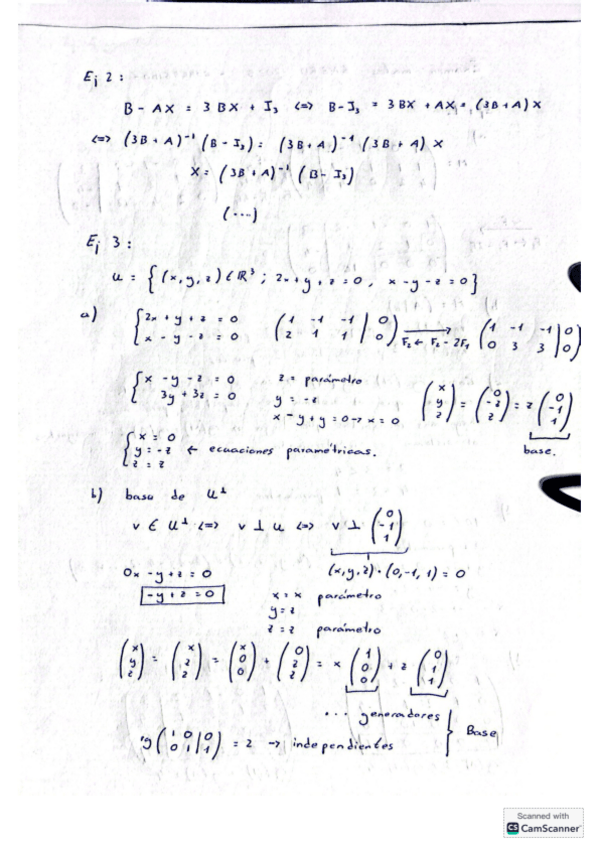 Ej 2:
B - AX = 3BX + I₃ <=> B - I₃ = 3BX + AX = (3B + A) X
<=> (3B + A)⁻¹ (B - I₃) = (3B + A)⁻¹ (3B + A) X
X = (3B + A)⁻¹ (B - I₃)
(...)
Ej 3:
U = {(x, y, z) ∈ ℝ³ ; 2x + y + z = 0, x - y - z = 0}
a) { 2x + y + z = 0
x - y - z = 0
(1 -1 -1 | 0
2 1 1 | 0) → F₂ ← F₂ - 2F₁ (1 -1 -1 | 0
0 3 3 | 0)
{ x - y - z = 0
3y + 3z = 0
z = parámetro
y = -z
x - y + y = 0 → x = 0
(x y z) = (0 -z z) = z (0 -1 1)
base.
{ x = 0
y = -z ← ecuaciones paramétricas.
z = z
b) base de U⊥
v ∈ U⊥ <=> v ⊥ U <=> v ⊥ (0 -1 1)
(x, y, z) · (0, -1, 1) = 0
0x - y + z = 0
-y + z = 0
x = x parámetro
y = z
z = z parámetro
(x y z) = (x z z) = (x 0 0) + (0 z z) = x (1 0 0) + z (0 1 1)
... generadores
rg (1 0 0
0 1 1) = 2 → independientes } Base
Scanned with
CS CamScanner